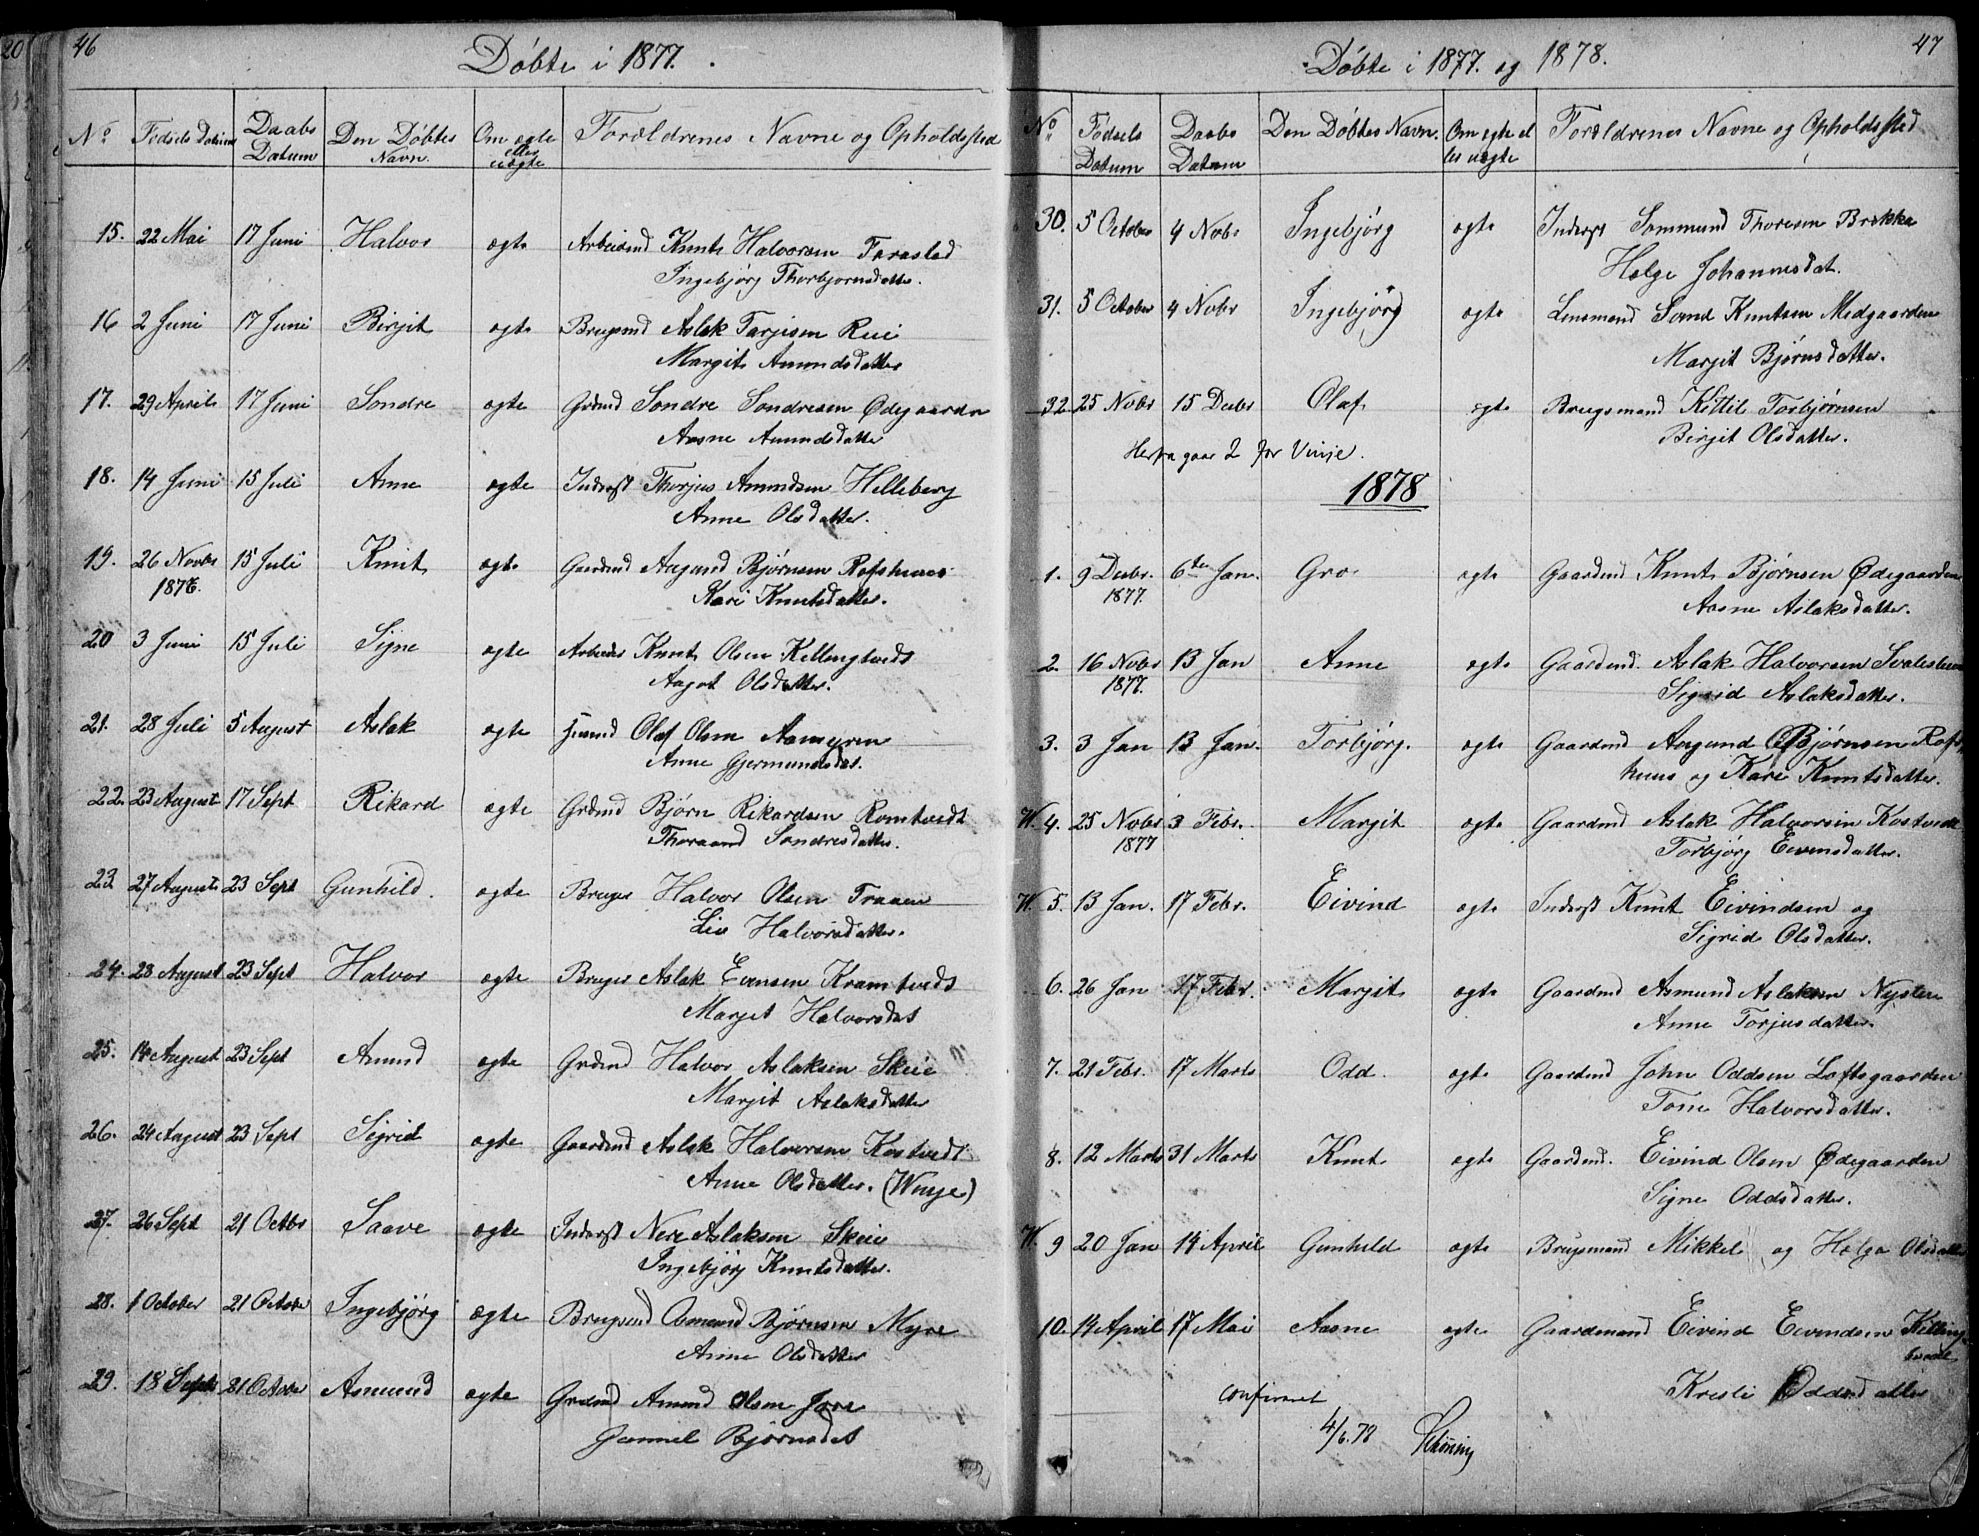 46
Døbte i 1877.
No Fødsels Datum Daabs Datum Den Døbtes Navn. Om ægte eller uægte Forældrenes Navne og Opholdssted
15. 22 Mai 17 Juni Halvor ægte Arbeidsmd Knut Halvorsen
Ingebjørg Thorbjornsdatter.
16 2 Juni 17 Juni Birgit ægte Brugsmd Aslak Tarjisen Rui
Margit Amundsdatter
17. 29 April 17 Juni Sondre ægte Grdmd Sondre Sondresen Ødegaarden
Aasne Amundsdatter
18. 14 Juni 15 Juli Anne ægte Inderst Thorjus Amundsen Helleberg
Anne Olsdatter.
19. 26 Novbr 15 Juli Knut ægte Gaardmd Aagund Bjørnsen Rofshuus
1876. Kari Knutsdatter.
20 3 Juni 15 Juli Signe ægte Arbeider Knut Olsen Kellingtvedt
Aagot Olsdatter.
21. 28 Juli 5 August Aslak ægte Husmd Olaf Olsen Aamyren
Anne Gjermundsdat.
22. 23 August 17 Sept Rikard ægte Grdmd Bjørn Rikardsen Romtvedt
Thoraand Sondresdatter.
23. 27 August 23 Sept Gunhild. ægte Bruger Halvor Olsen Traaen
Liv Halvorsdatter.
24. 28 August 23 Sept Halvor ægte Bruger Aslak Evensen Kramtvedt
Margit Halvorsdat
25. 14 August 23 Sept Amund ægte Grdmd Halvor Aslaksen Skeie
Margit Aslaksdatter
26. 24 August 23 Sept Sigrid ægte Gaardmd Aslak Halvorsen Kostvedt
Anne Olsdatter. (Winje)
27. 26 Sept 21 Octbr Saave ægte Inderst Neri Aslaksen Skeie
Ingebjørg Knutsdatter.
28. 1 October 21 October Ingebjørg ægte Brugsmd Asmund Bjørnsen Myre
Anne Olsdatter
29. 18 Sept 21 October Asmund ægte Grdmd Amund Olsen Jore
Gunnel Bjørnsdat
47
Døbte i 1877. og 1878.
No Fødsels Datum Daabs Datum Den Døbtes Navn. Om ægte eller uægte Forældrenes Navne og Opholdssted
30. 5 October 4 Nobr Ingebjørg ægte Inderst Sommund Thoresen Brekke
Helge Johannesdat.
31. 5 October 4 Nobr Ingebjørg ægte Lensmand Svend Knutsen Midgaarden
Margit Bjørnsdatter.
32. 25 Nobr 15 Debr Olaf ægte Brugsmand Kittil Torbjørnsen
Birgit Olsdatter.
Herfra gaar 2 for Vinje.
1878
1. 9 Debr. 6te Jan. Gro ægte Gaardmd Knut Bjørnsen Ødegaarden
1877. Aasne Aslaksdatter.
2. 16 Nobr 13 Jan Anne ægte Gaardmd. Aslak Halvorsen
1877. Sigrid Aslaksdatter.
3. 3 Jan 13 Jan. Torbjørg. ægte Gaardmd Aagund Bjørnsen Rofs-
huus og Kari Knutsdatter.
W. 4. 25 Nobr 3 Febr. Margit ægte Gaardmd Aslak Halvorsen Kostvedt
1877 Torbjørg Eivindsdatter.
W. 5. 13 Jan. 17 Febr. Eivind ægte Inderst Knut Eivindsen og
Sigrid Olsdatter.
6. 26 Jan 17 Febr. Margit ægte Gaardmd Asmund Aslaksen Nysten
Anne Torjusdatter.
7. 21 Febr. 17 Marts Odd. ægte Gaardmd John Oddsen Loftsgaarden
Tone Halvorsdatter.
8. 12 Marts 31 Marts Knut ægte Gaardmd. Eivind Olsen Ødegaarden
Signe Oddsdatter.
W. 9 20 Jan 14 April Gunhild ægte Brugsmand Mikkel og Helga Olsdatter
10. 14 April 17 Mai Aasne ægte Gaardmand Eivind Eivindsen Killing-
tvedt
Kristi Oddsdatter
Confirmert
4/6.78 Schöning